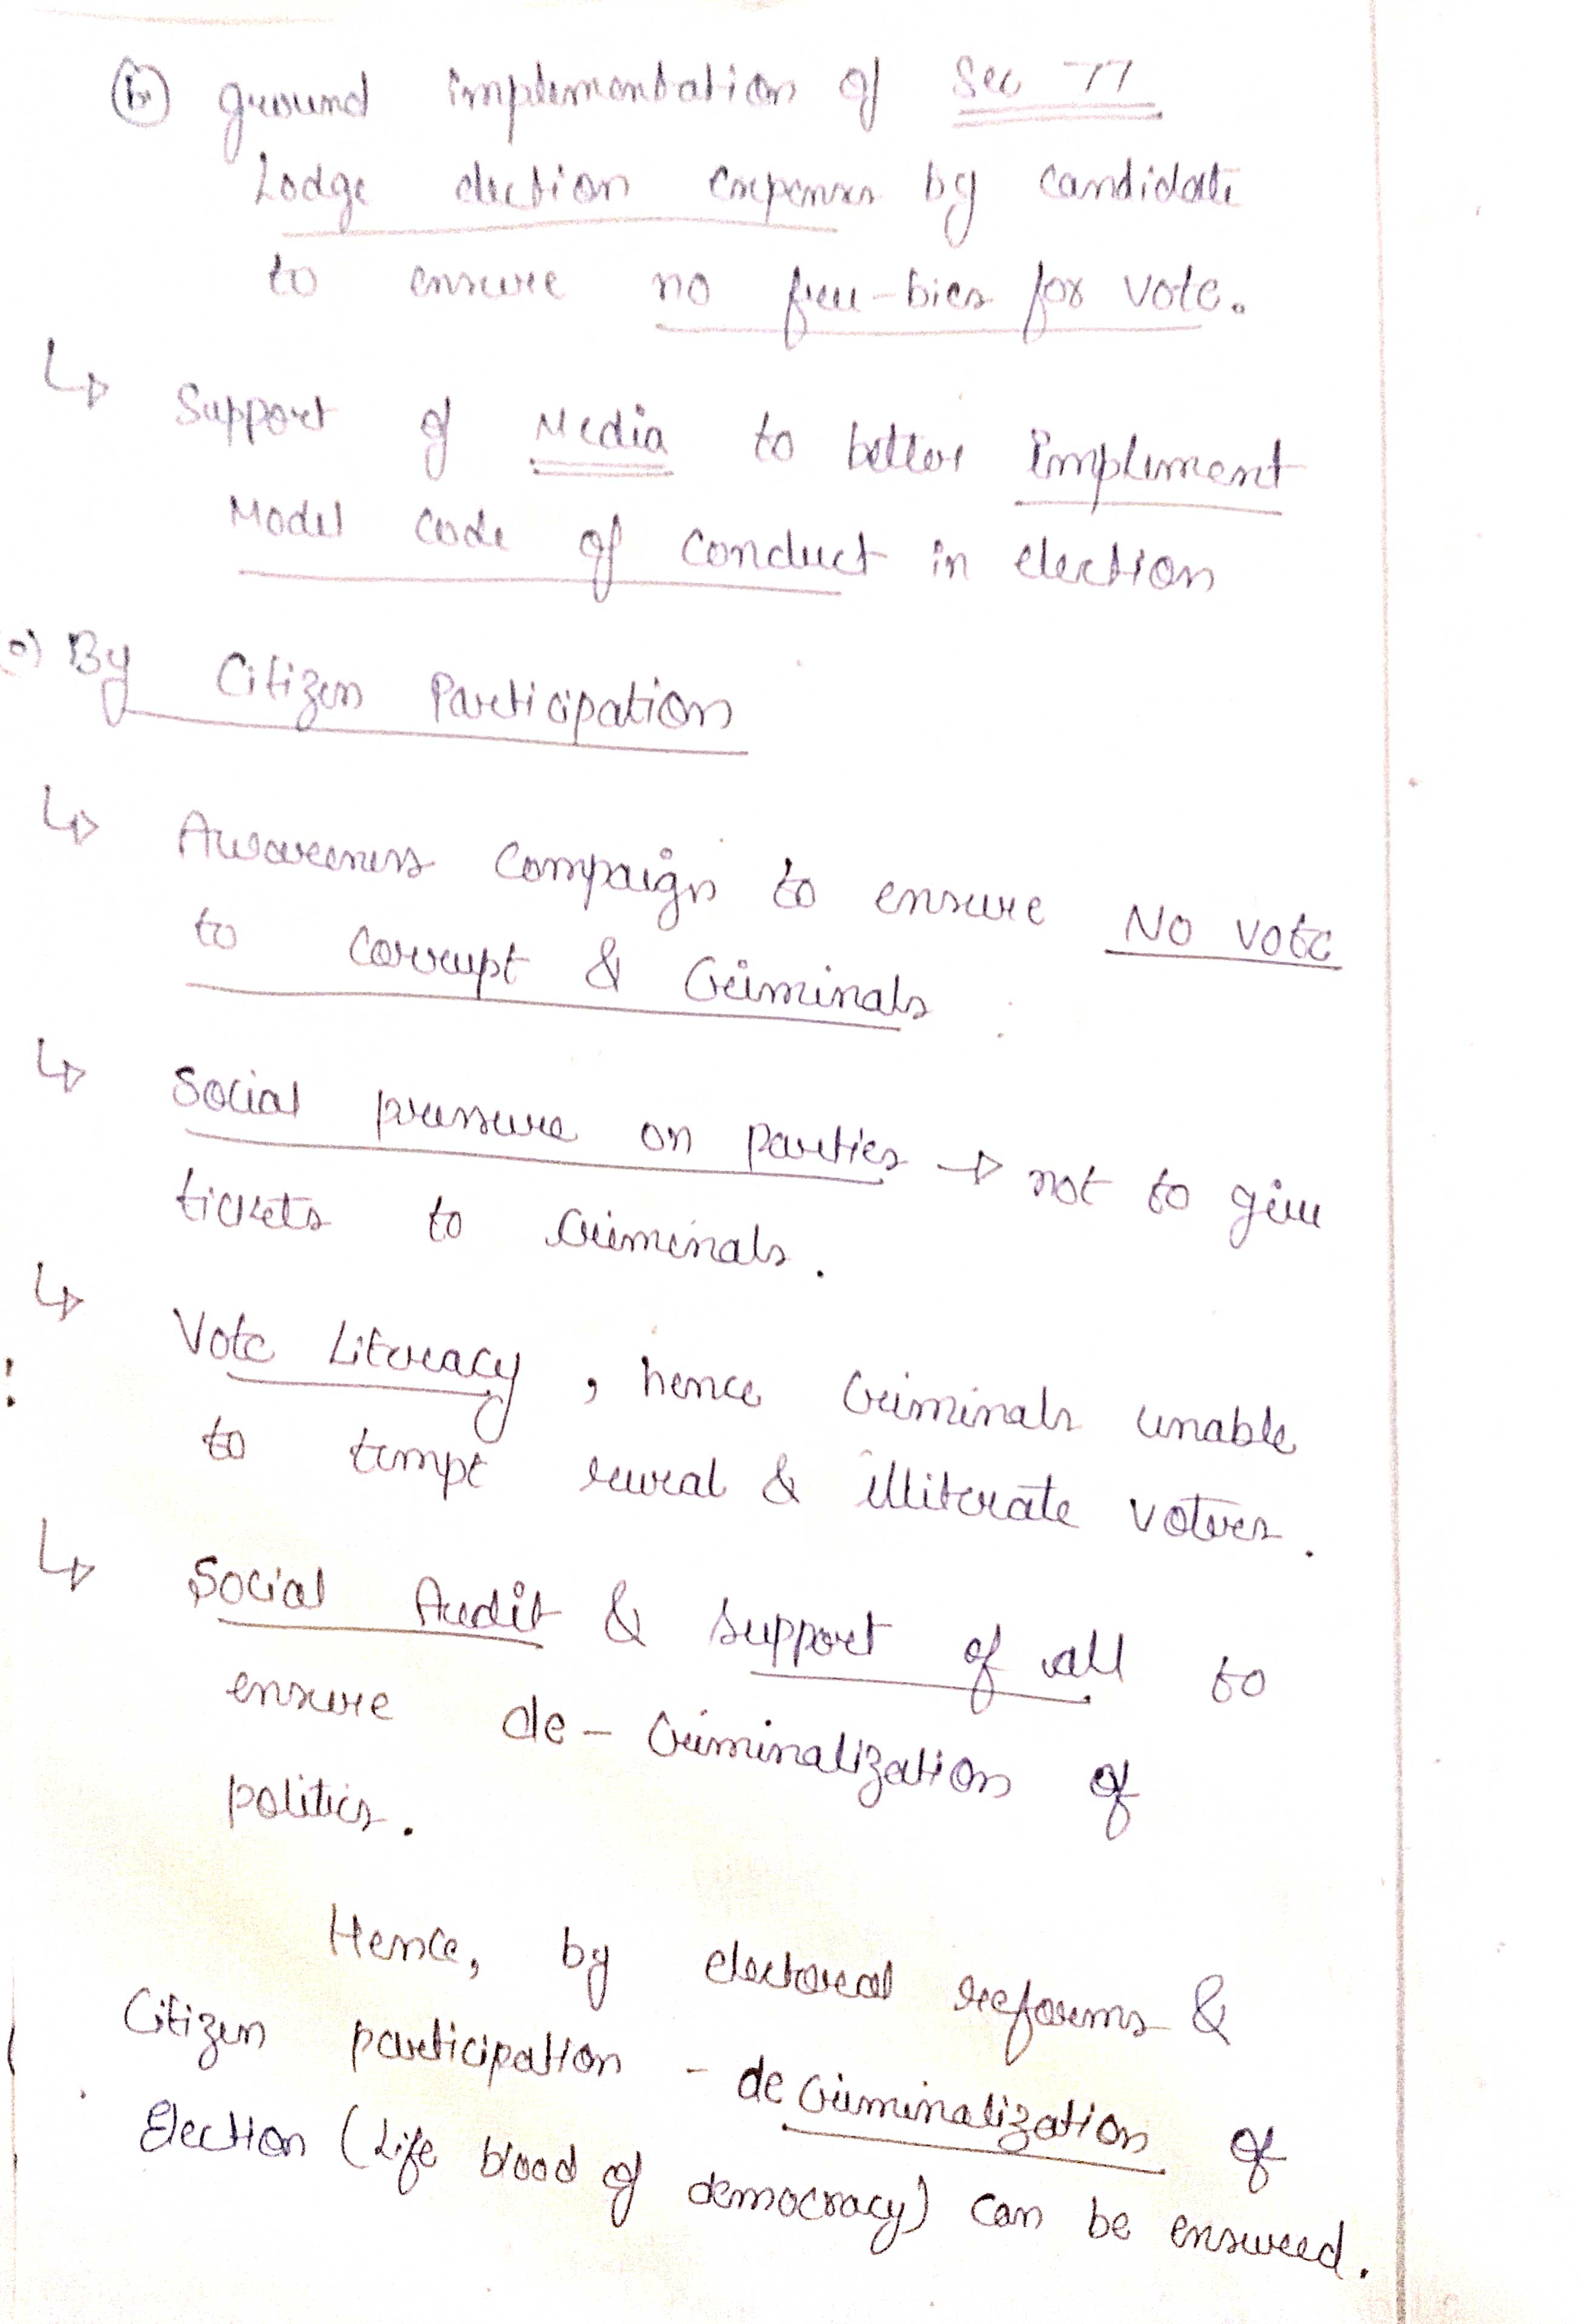 ground implementation of Sec 77
Lodge election expenses by candidate
to ensure no free-bies for vote.
↳ Support of Media to better implement
Model Code of Conduct in election
By Citizen Participation
↳ Awareness Compaign to ensure No vote
to corrupt & Criminals
↳ Social pressure on parties → not to give
tickets to criminals.
↳ Vote Literacy, hence Criminals unable
to tempt rural & illiterate voters.
↳ Social Audit & support of all to
ensure de-Criminalization of
politics.
Hence, by electoral reforms &
Citizen participation - decriminalization of
Election (Life blood of democracy) can be ensured.